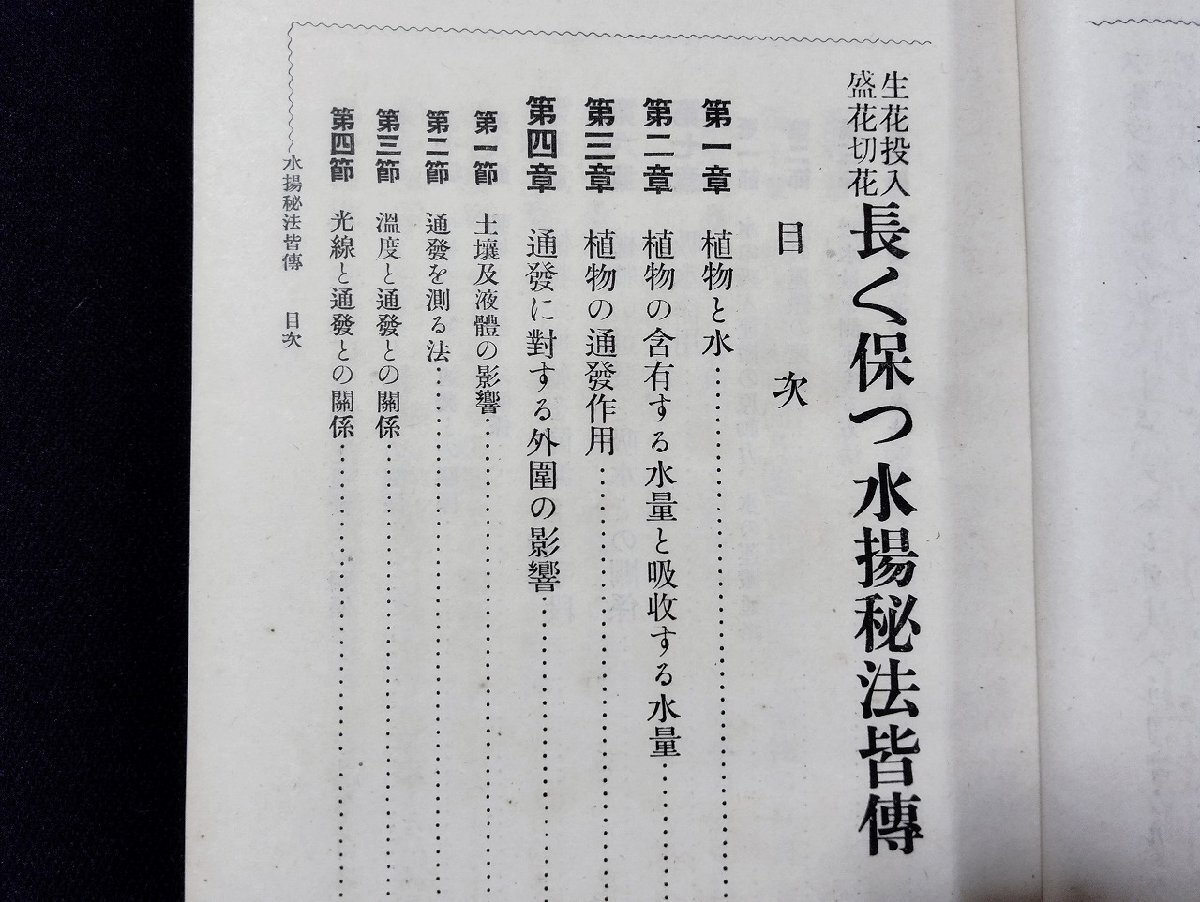 生花投入
盛花切花
長く保つ水揚秘法皆傳
目次
第一章 植物と水
第二章 植物の含有する水量と吸收する水量
第三章 植物の通發作用
第四章 通發に對する外圍の影響
第一節 土壤及液體の影響
第二節 通發を測る法
第三節 溫度と通發との關係
第四節 光線と通發との關係
水揚秘法皆傳 目次